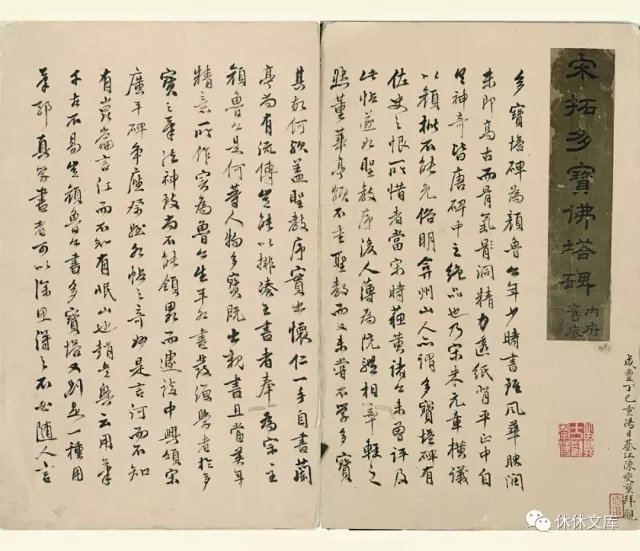 宋拓多寶佛塔碑
內府
咸豐丁巳重陽日綦江陳拜觀
多寶塔碑為顏魯公年少時書雖風華腴潤
未即高古而骨氣洞精力透紙背平正中自
具神奇皆唐碑中之絕品也乃宋米元章橫議
以顏不能免俗明弇州山人亦謂多寶塔碑有
佐史之恨所惜者當宋時蘇黃諸公未曾評及
此帖遂如聖教序後人薄為院體相率輕之
然董華亭頗不重聖教而又未嘗不學多寶
其故何歟蓋聖教序實出懷仁一手自書蘭
亭尚有流傳豈能以排湊之書者奉為宗主
顏魯公是何等人物多寶既出親書且當英年
精意所作實為魯公生平書後學者於多
寶之筆法神致尚不能領略而遽談中興頌宋
廣平碑爭座祭姪各帖之奇妙是言河而不知
有崑崙言江而不知有岷山也趙吳興云用筆
千古不易豈顏魯公書多寶塔又別無一種用
筆邪真學書者可以深思得之不必隨人言
休休文库